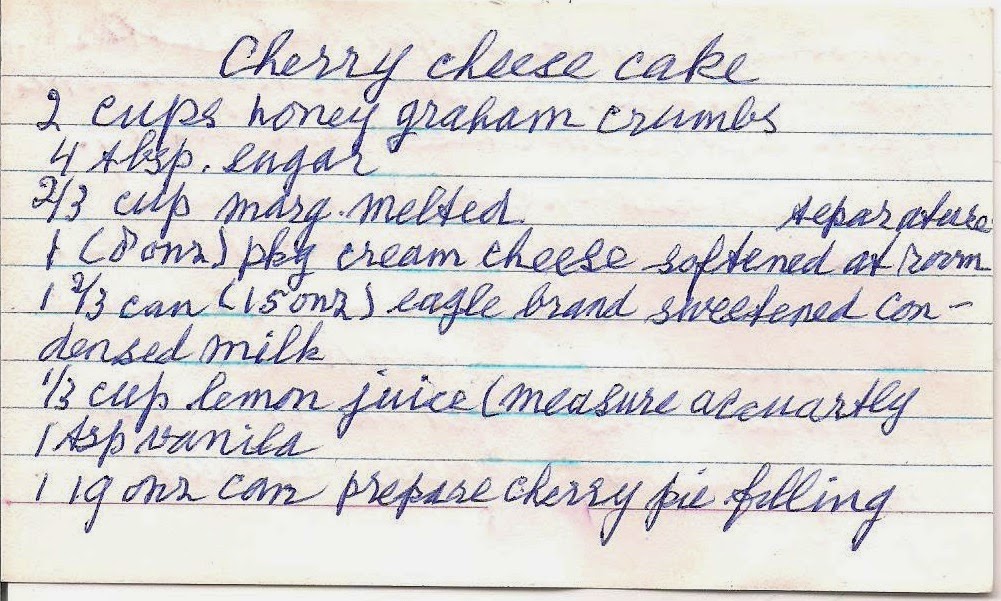 Cherry cheese cake
2 cups honey graham crumbs
4 tbsp. sugar
2/3 cup marg. melted
teparature
1 (8 onz) pkg cream cheese softened at room
1 2/3 can (15 onz) eagle brand sweetened con-
densed milk
1/3 cup lemon juice (measure acuuartly
1 tsp vanila
1 19 onz can prepare cherry pie filling